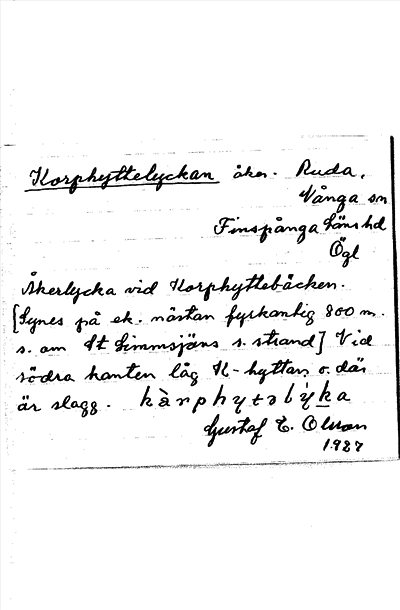 Korphyttelyckan åker. Ruda,
Vånga sn
Finspånga läns hd
Ögl
Åkerlycka vid Korphyttebäcken.
[Synes på ek. nästan fyrkantig 800 m.
s. om St Gimmsjäns s. strand] Vid
södra kanten låg K-hyttan o. där
är slagg. kàrphytəlýka
Gustaf E. Olsson
1927